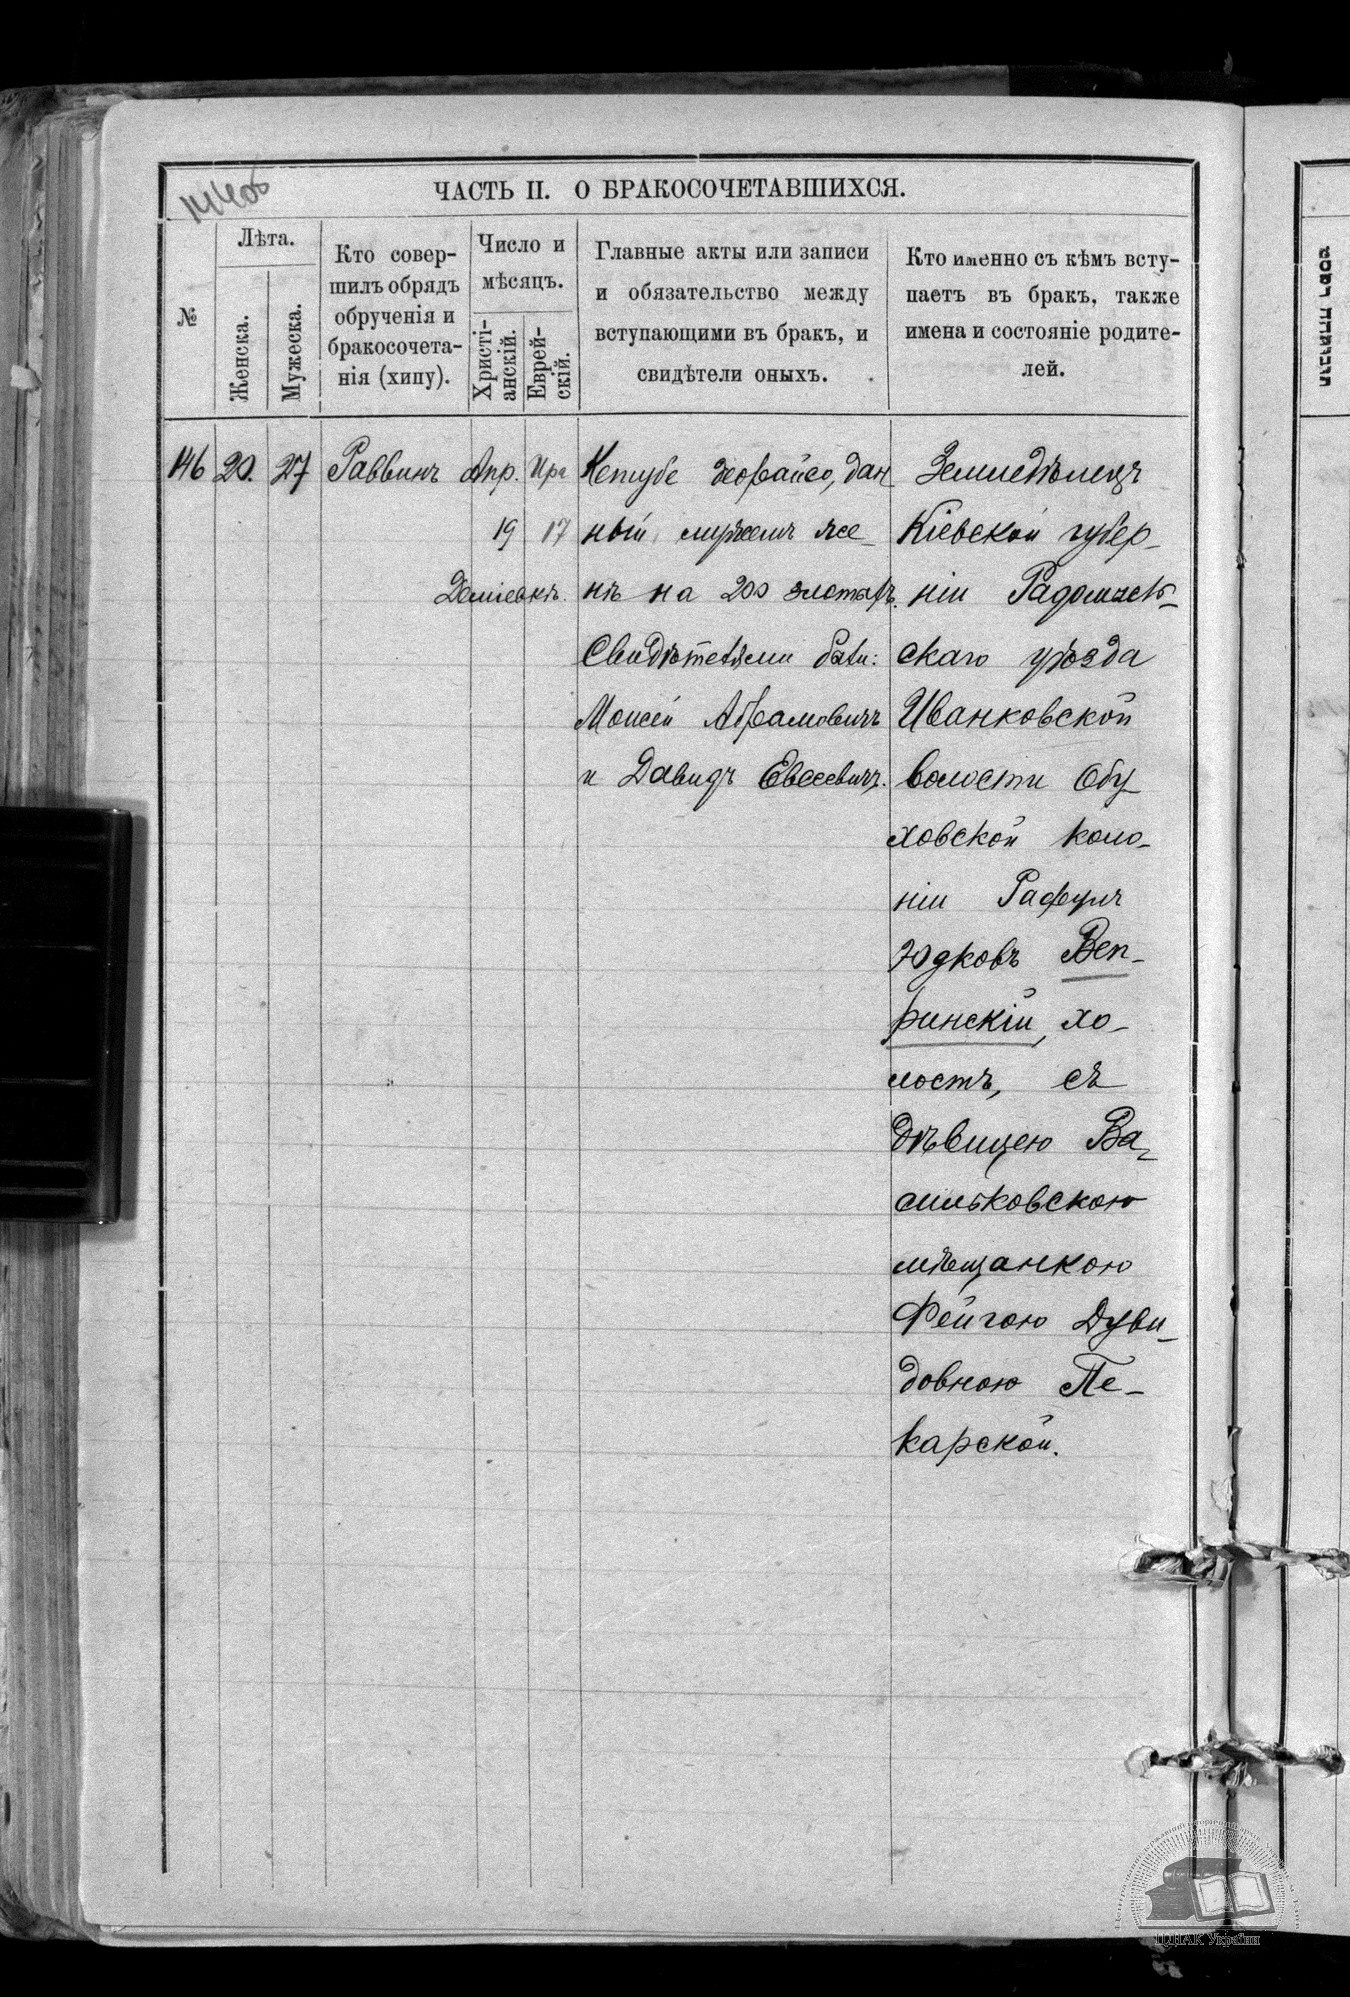 ЧАСТЬ II. О БРАКОСОЧЕТАВШИХСЯ.
№
Лѣта.
Женска.
Мужеска.
Кто совер-
шилъ обрядъ
обрученія и
бракосочета-
нія (хипу).
Число и
мѣсяцъ.
Христі-
анскій.
Еврей-
скій.
Главные акты или записи
и обязательство между
вступающими въ бракъ, и
свидѣтели оныхъ.
Кто именно съ кѣмъ всту-
паетъ въ бракъ, также
имена и состояніе родите-
лей.
146 20. 27 Раввинъ Апр. Ира
19 17
Деміевкѣ.
Кетубе деорайсо, дан
ный мужемъ же-
нѣ на 200 злотыхъ.
Свидѣтелями были:
Моисей Абрамовичъ
и Давидъ Евсеевичъ.
Земледѣлецъ
Кіевской губер-
ніи Радомысль-
скаго уѣзда
Иванковской
волости Обу
ховской коло-
ніи Рафулъ
Юдковъ Веп-
ринскій, хо-
лостъ, съ
дѣвицею Ва-
сильковскою
мѣщанкою
Фейгою Дуви-
довною Пе-
карской.
ЦДІАК України